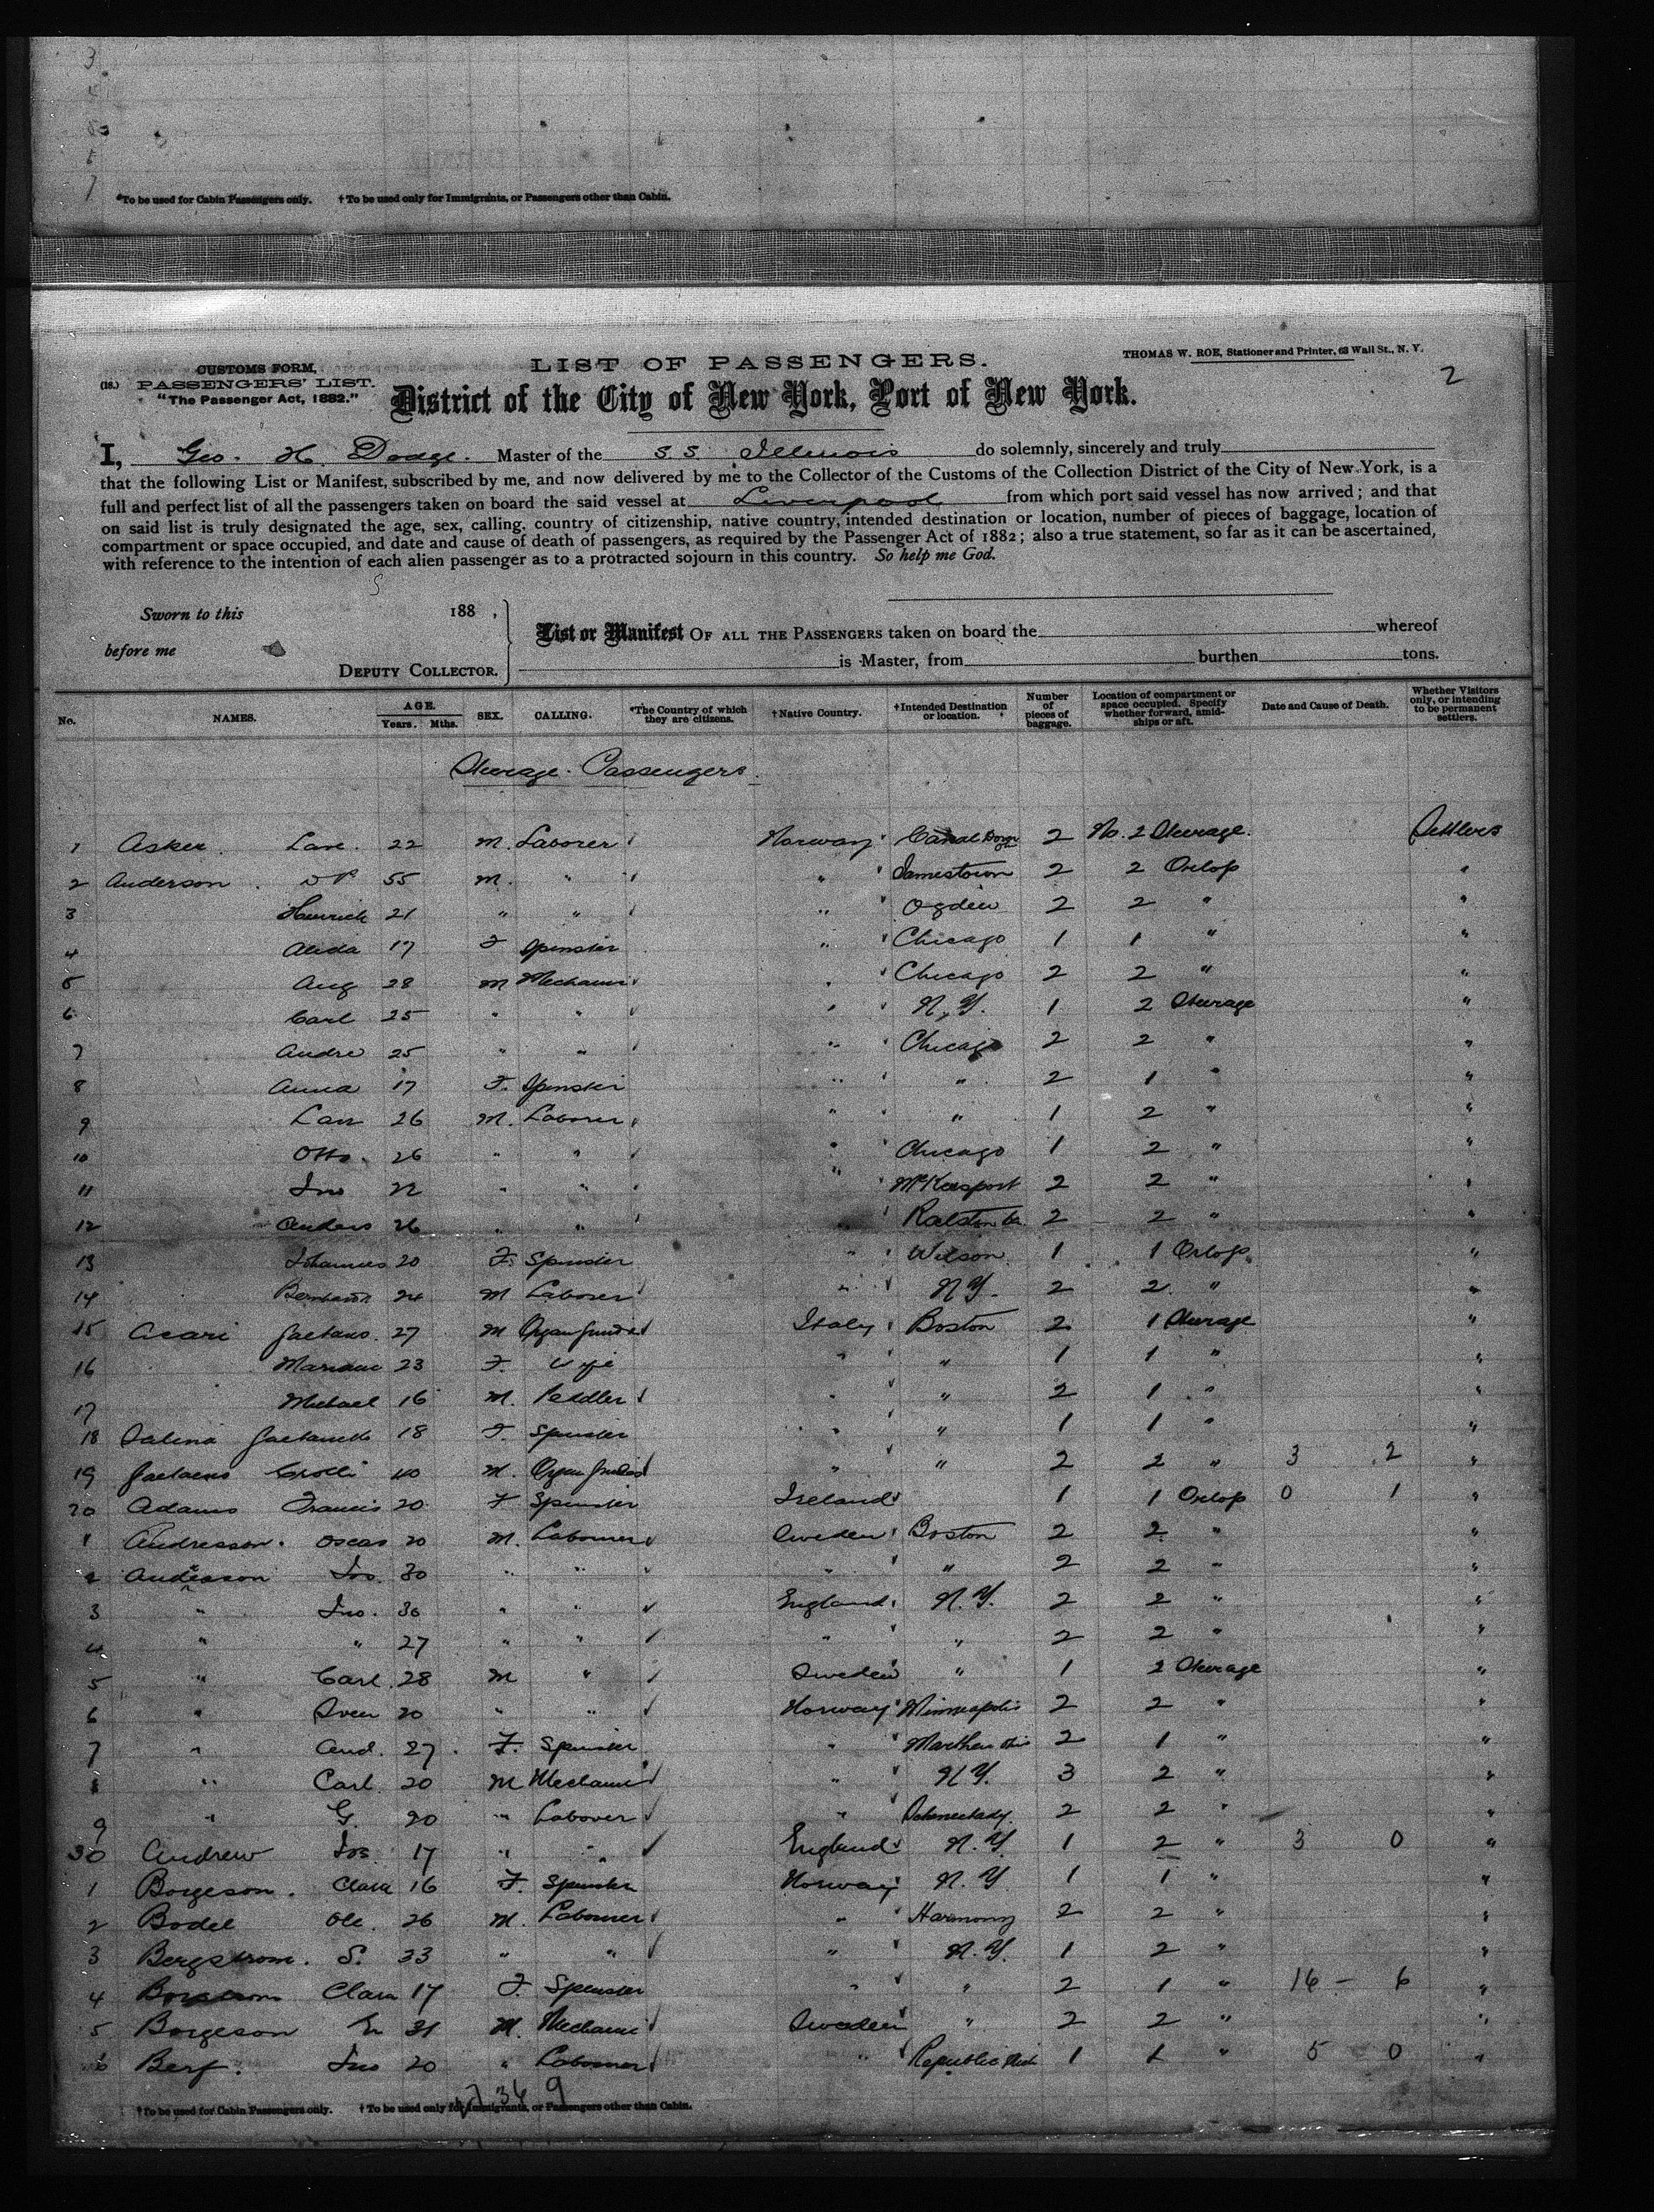 3
7
*To be used for Cabin Passengers only. † To be used only for Immigrants, or Passengers other than Cabin.
THOMAS W. ROE, Stationer and Printer, 63 Wall St., N. Y.
2
CUSTOMS FORM,
(18.) PASSENGERS' LIST.
"The Passenger Act, 1882."
LIST OF PASSENGERS.
District of the City of New York, Port of New York.
I, Geo. H. Dodge. Master of the S S Illinois do solemnly, sincerely and truly
that the following List or Manifest, subscribed by me, and now delivered by me to the Collector of the Customs of the Collection District of the City of New York, is a
full and perfect list of all the passengers taken on board the said vessel at Liverpool from which port said vessel has now arrived; and that
on said list is truly designated the age, sex, calling, country of citizenship, native country, intended destination or location, number of pieces of baggage, location of
compartment or space occupied, and date and cause of death of passengers, as required by the Passenger Act of 1882; also a true statement, so far as it can be ascertained,
with reference to the intention of each alien passenger as to a protracted sojourn in this country. So help me God.
Sworn to this 188 ,
before me
DEPUTY COLLECTOR.
List or Manifest OF ALL THE PASSENGERS taken on board the whereof
is Master, from burthen tons.
No. NAMES. AGE. Years. Mths. SEX. CALLING. *The Country of which they are citizens. †Native Country. †Intended Destination or location. Number of pieces of baggage. Location of compartment or space occupied. Specify whether forward, amidships or aft. Date and Cause of Death. Whether Visitors only, or intending to be permanent settlers.
Steerage Passengers.
1 Asker. 22 M. Laborer Norway Canal Dover 2 No. 2 Steerage. Settlers
2 Anderson. 55 M. " " Jamestown 2 2 Orlop "
3 Heinrich 21 " " " Ogden 2 2 " "
4 Alida 17 F Spinster " Chicago 1 1 " "
5 Aug 28 M Mechanic " Chicago 2 2 " "
6 Carl 25 " " " N.Y. 1 2 Steerage "
7 Andre 25 " " " Chicago 2 2 " "
8 Anna 17 F. Spinster " " 2 1 " "
9 Lars 26 M. Laborer " " 1 2 " "
10 Otto. 26 " " " Chicago 1 2 " "
11 Jno 22 " " " McKeesport 2 2 " "
12 Anders 26 " " " Ralston 2 2 " "
13 Johannes 20 F. Spinster " Wilson 1 1 Orlop "
14 Bernhard 24 M Laborer " N Y. 2 2 " "
15 Acari Gaetano. 27 M Organ Grinder Italy Boston 2 1 Steerage "
16 23 F. Wife " " 1 1 " "
17 Michael 16 M. Peddler " " 2 1 " "
18 Salina 18 F. Spinster " " 1 1 " "
19 Gaetano 40 M. Organ Grinder " " 2 2 " 3 2 "
20 Adams Francis 20 F Spinster Ireland 1 1 Orlop 0 1 "
1 Andresson. Oscar 20 M. Labourer Sweden Boston 2 2 " "
2 Anderson Jos. 30 " " " " 2 2 " "
3 " Jno. 30 " " England N.Y. 2 2 " "
4 " " 27 " " " " 2 2 " "
5 " Carl 28 M " Sweden " 1 2 Steerage "
6 " Sven 20 " " Norway Minneapolis 2 2 " "
7 " And. 27 F. Spinster " 2 1 " "
8 " Carl 20 M Mechanic " N Y. 3 2 " "
9 " G. 20 " Laborer " Schenectady 2 2 " "
30 Andrew Jos 17 " " England N.Y. 1 2 " 3 0 "
1 Borgeson. Clara 16 F. Spinster Norway N.Y 1 1 " "
2 Bodel Ole. 26 M. Labourer " Harmony 2 2 " "
3 Bergstrom. S. 33 " " " N.Y. 1 2 " "
4 Clara 17 F. Spinster " " 2 1 " 16 - 6 "
5 Borgeson 31 M. Mechanic Sweden " 2 2 " "
6 Berf. Jno 20 " Labourer " Republic Mich 1 1 " 5 0 "
*To be used for Cabin Passengers only. † To be used only for Immigrants, or Passengers other than Cabin.